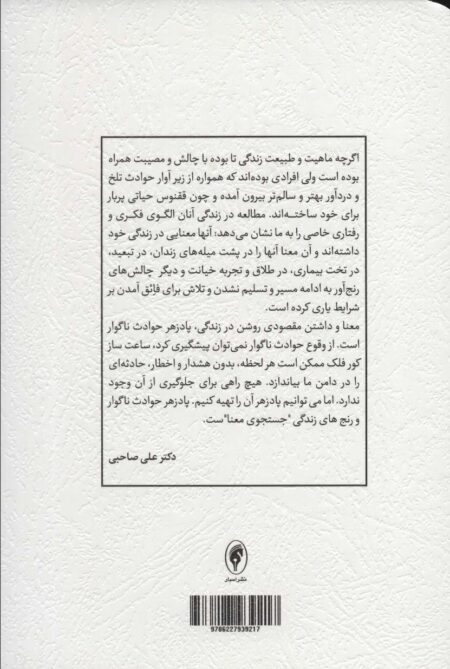 اگرچه ماهیت و طبیعت زندگی تا بوده با چالش و مصیبت همراه
بوده است ولی افرادی بوده‌اند که همواره از زیر آوار حوادث تلخ
و دردآور بهتر و سالم‌تر بیرون آمده و چون ققنوس حیاتی پربار
برای خود ساخته‌اند. مطالعه در زندگی آنان الگوی فکری و
رفتاری خاصی را به ما نشان می‌دهد؛ آنها معنایی در زندگی خود
داشته‌اند و آن معنا آنها را در پشت میله‌های زندان، در تبعید،
در تخت بیماری، در طلاق و تجربه خیانت و دیگر چالش‌های
رنج‌آور به ادامه مسیر و تسلیم نشدن و تلاش برای فائق آمدن بر
شرایط یاری کرده است.
معنا و داشتن مقصودی روشن در زندگی، پادزهر حوادث ناگوار
است. از وقوع حوادث ناگوار نمی‌توان پیشگیری کرد، ساعت ساز
کور فلک ممکن است هر لحظه، بدون هشدار و اخطار، حادثه‌ای
را در دامن ما بیاندازد. هیچ راهی برای جلوگیری از آن وجود
ندارد. اما می توانیم پادزهر آن را تهیه کنیم. پادزهر حوادث ناگوار
و رنج های زندگی "جستجوی معنا"ست.
دکتر علی صاحبی
نشر اسبار
9786227939217